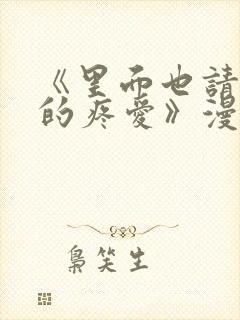 《里面也請
的疼愛》漫
梟笑生